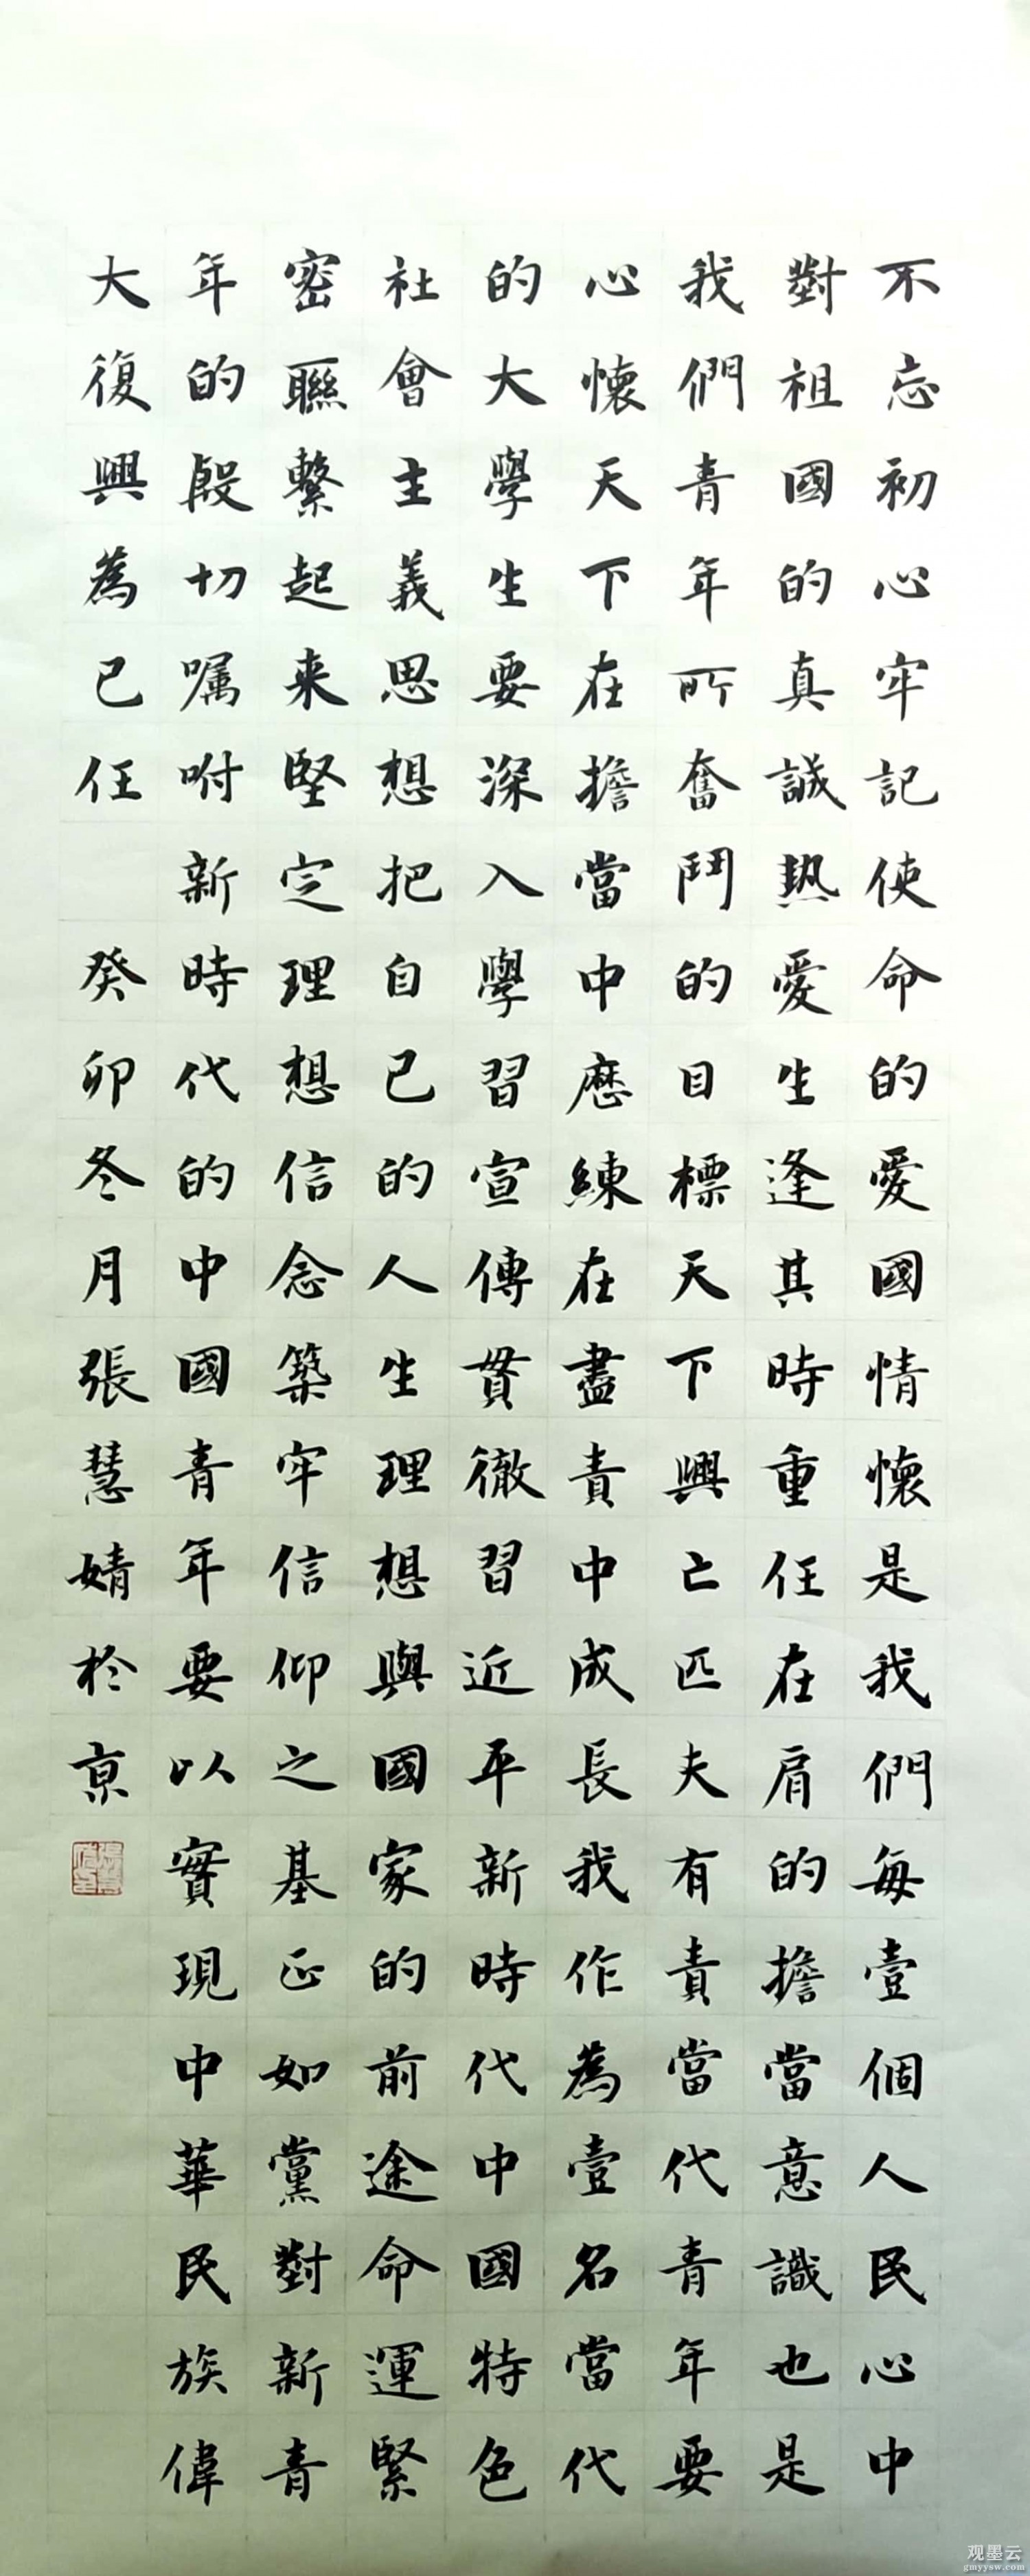 不忘初心牢記使命的愛國情懷是我們每壹個人民心中
對祖國的真誠熱愛生逢其時重任在肩的擔當意識也是
我們青年所奮鬥的目標天下興亡匹夫有責當代青年要
心懷天下在擔當中歷練在盡責中成長我作為壹名當代
的大學生要深入學習宣傳貫徹習近平新時代中國特色
社會主義思想把自己的人生理想與國家的前途命運緊
密聯繫起来堅定理想信念築牢信仰之基正如黨對新青
年的殷切囑咐新時代的中國青年要以實現中華民族偉
大復興為己任 癸卯冬月張慧婧於京
观墨云
gmyysw.com